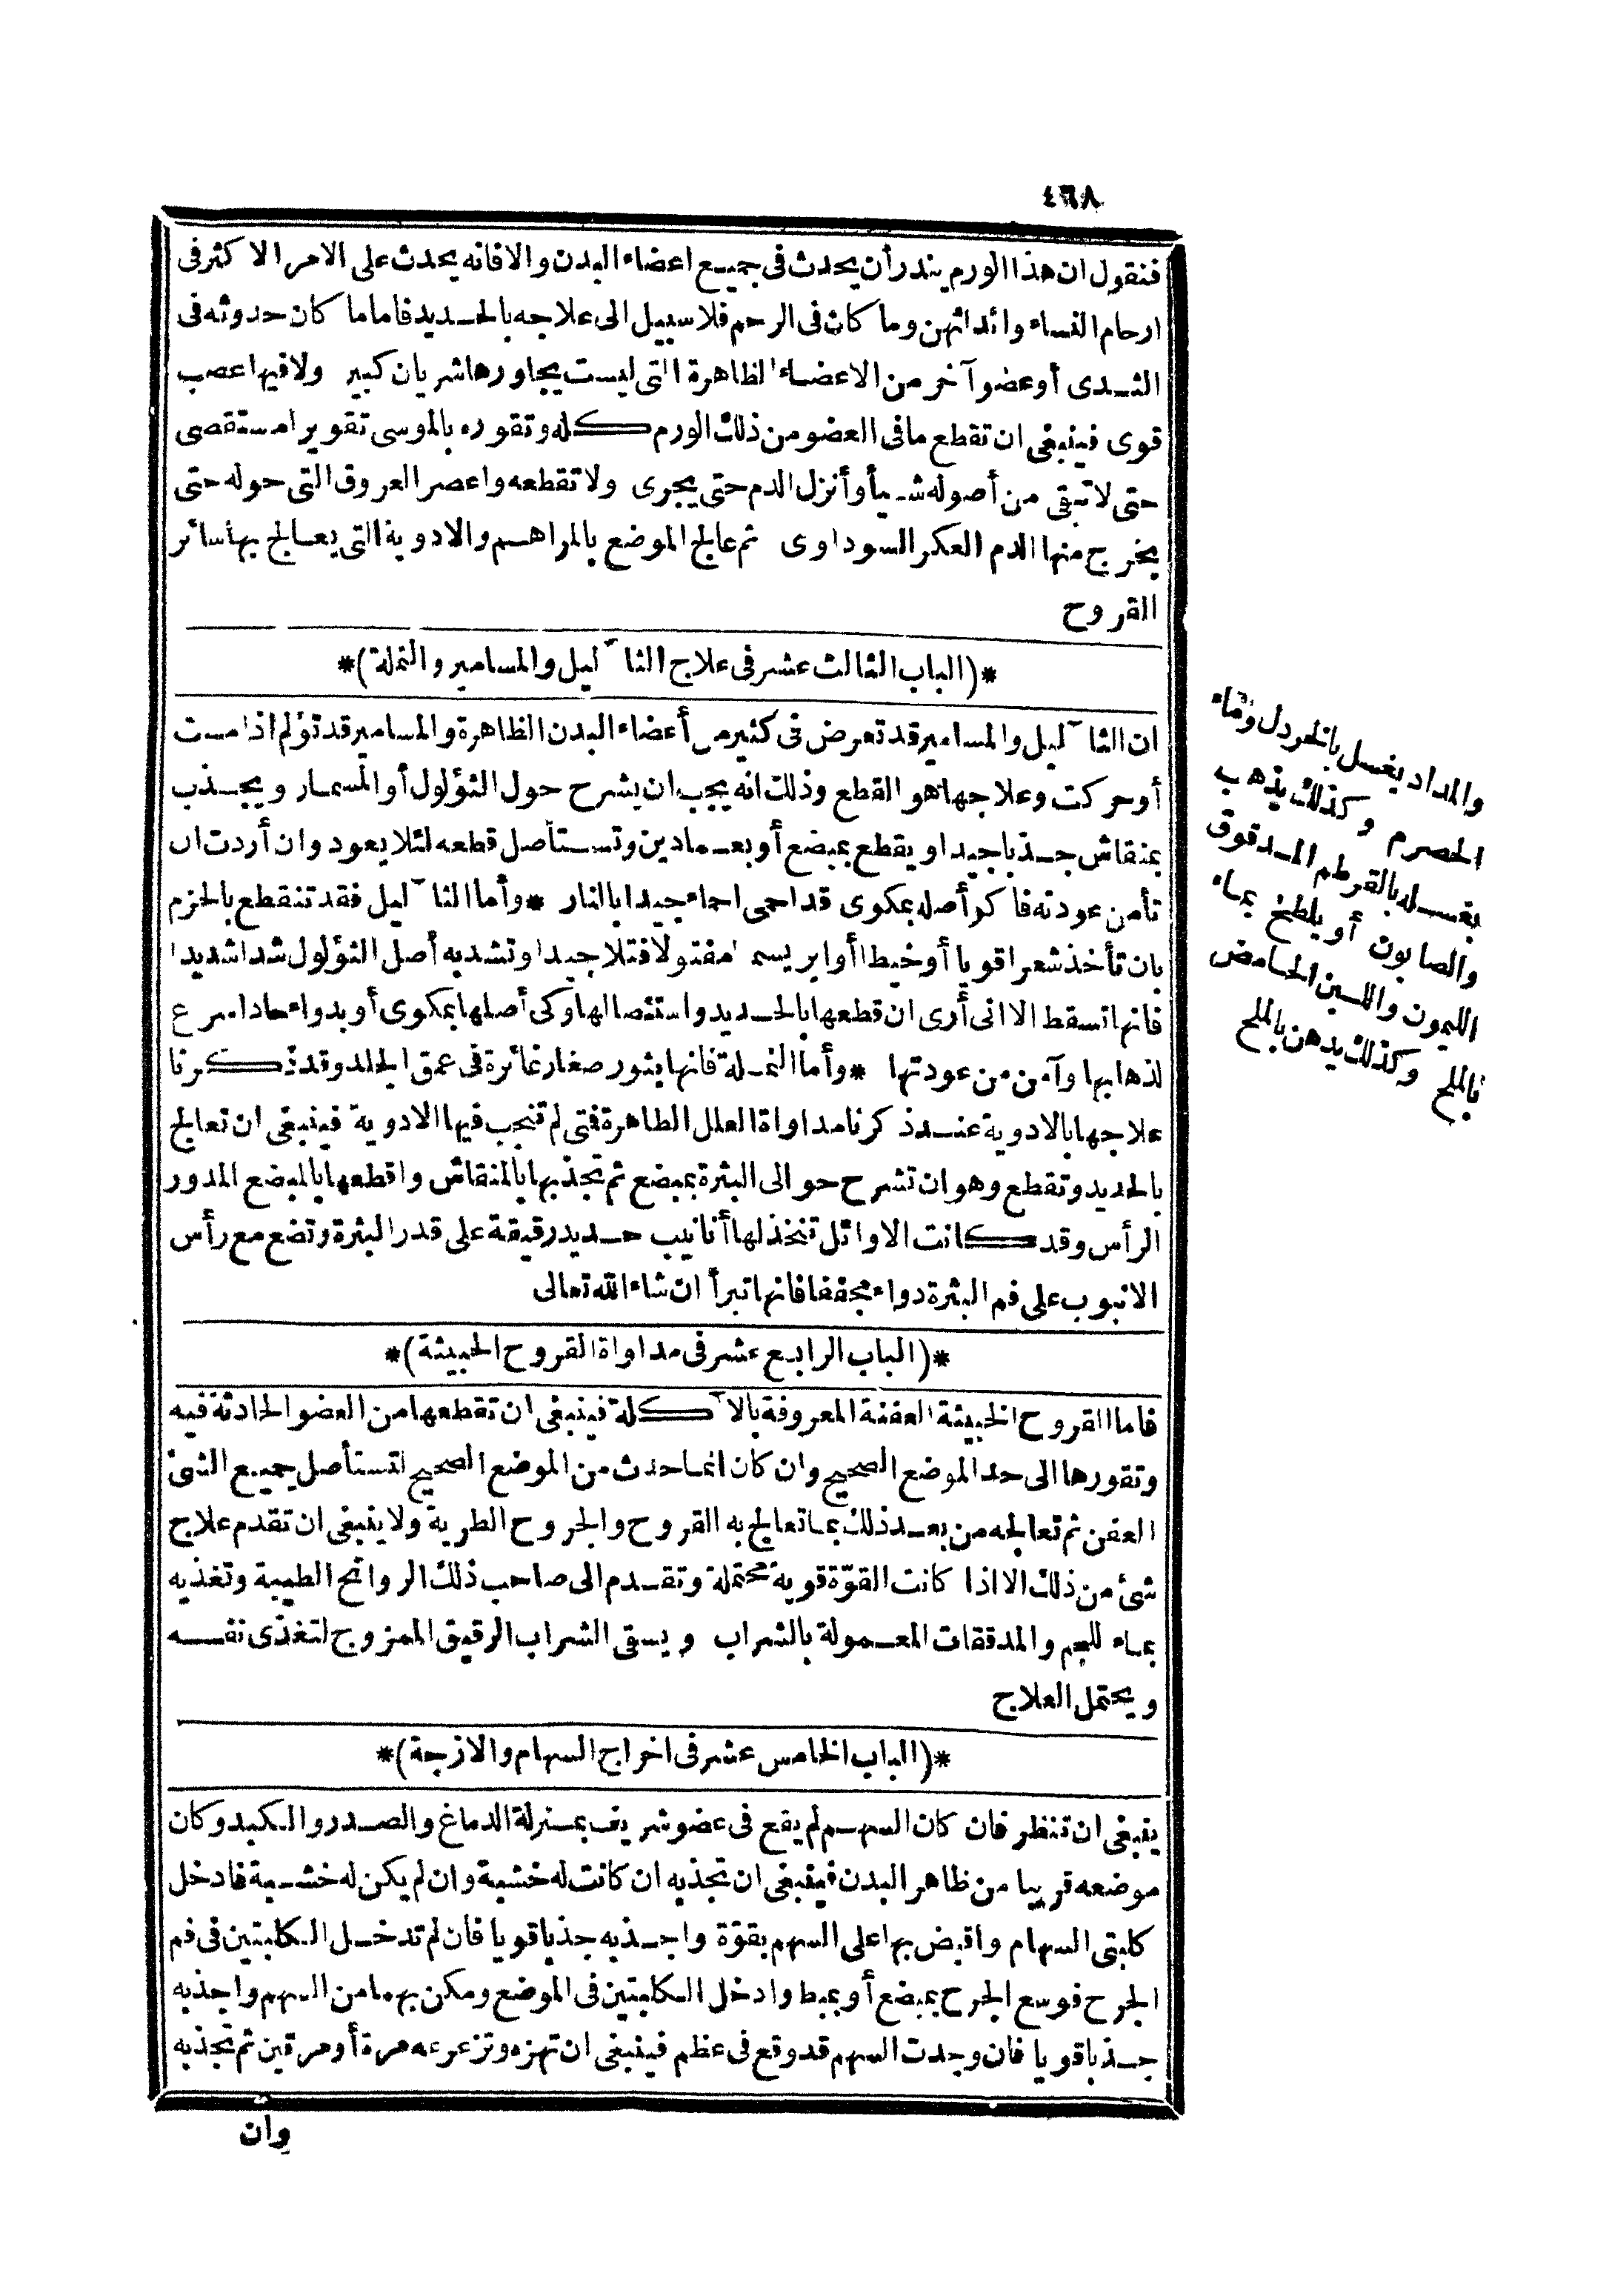 ٤٦٨
فنقول ان هذا الورم يندر أن يحدث فى جميع اعضاء البدن والا فانه يحدث على الامر الاكثر فى
ارحام النساء واثدائهن وما كان فى الرحم فلا سبيل الى علاجه بالحديد فاما ما كان حدوثه فى
الثدى أوعضو آخر من الاعضاء الظاهرة التى ليست يجاورها شريان كبير ولا فيها عصب
قوى فينبغى ان تقطع ما فى العضو من ذلك الورم كله وتقوره بالموسى تقويرا مستقصى
حتى لا تبقى من أصوله شيأ وأنزل الدم حتى يجرى ولا تقطعه واعصر العروق التى حوله حتى
يخرج منها الدم العكر السوداوى ثم عالج الموضع بالمراهم والادوية التى يعالج بها سائر
القروح
*(الباب الثالث عشر فى علاج الثآليل والمسامير والنملة)*
ان الثآليل والمسامير قد تعرض فى كثير من أعضاء البدن الظاهرة والمسامير قد تؤلم اذا مست
أوحركت وعلاجها هو القطع وذلك انه يجب ان يشرح حول الثؤلول أوالمسمار ويجذب
بمنقاش جذبا جيدا ويقطع بمبضع أوبعمادين وتستأصل قطعه لئلا يعود وان أردت ان
تأمن عودته فاكو أصله بمكوى قد احمى احماء جيدا بالنار *وأما الثآليل فقد تنقطع بالحزم
بان تأخذ شعرا قويا أوخيطا أوابريسما مفتولا فتلا جيدا وتشد به أصل الثؤلول شدا شديدا
فانها تسقط الا انى أرى ان قطعها بالحديد واستئصالها وكى أصلها بمكوى أوبدواء حاد اسرع
لذهابها وآمن من عودتها *وأما النملة فانها بثور صغار غائرة فى عمق الجلد وقد ذكرنا
علاجها بالادوية عند ذكرنا مداواة العلل الظاهرة فتى لم تنجب فيها الادوية فينبغى ان تعالج
بالحديد وتقطع وهو ان تشرح حوالى البثرة بمبضع ثم تجذبها بالمنقاش واقطعها بالمبضع المدور
الرأس وقد كانت الاوائل تتخذ لها أنابيب حديد رقيقة على قدر البثرة وتضع مع رأس
الانبوب على فم البثرة دواء مجففا فانها تبرأ ان شاء الله تعالى
*(الباب الرابع عشر فى مداواة القروح الخبيثة)*
فاما القروح الخبيثة العفنة المعروفة بالآكلة فينبغى ان تقطعها من العضو الحادثة فيه
وتقورها الى حد الموضع الصحيح وان كان انما حدث من الموضع الصحيح لتستأصل جميع الشئ
العفن ثم تعالجه من بعد ذلك بما تعالج به القروح والجروح الطرية ولا ينبغى ان تقدم علاج
شئ من ذلك الا اذا كانت القوّة قوية محتملة وتقدم الى صاحب ذلك الروائح الطيبة وتغذيه
بماء اللحم والمدققات المعمولة بالشراب ويسقى الشراب الرقيق الممزوج لتغذى نفسه
ويحتمل العلاج
*(الباب الخامس عشر فى اخراج السهام والازجة)*
ينبغى ان تنظر فان كان السهم لم يقع فى عضو شريف بمنزلة الدماغ والصدر والكبد وكان
موضعه قريبا من ظاهر البدن فينبغى ان تجذبه ان كانت له خشبة وان لم يكن له خشبة فادخل
كلبتى السهام واقبض بها على السهم بقوّة واجذبه جذبا قويا فان لم تدخل الكلبتين فى فم
الجرح فوسع الجرح بمبضع أوبمبط وادخل الكلبتين فى الموضع ومكن بهما من السهم واجذبه
جذبا قويا فان وجدت السهم قد وقع فى عظم فينبغى ان تهزه وتزعزعه مرة أومرتين ثم تجذبه
وان
والمداد يغسل بالخردل وماء
الحصرم وكذلك يذهب
بغسله بالقرطم المدقوق
والصابون أو يلطخ بماء
الليمون واللبن الحامض
بالملح وكذلك يدهن بالملح